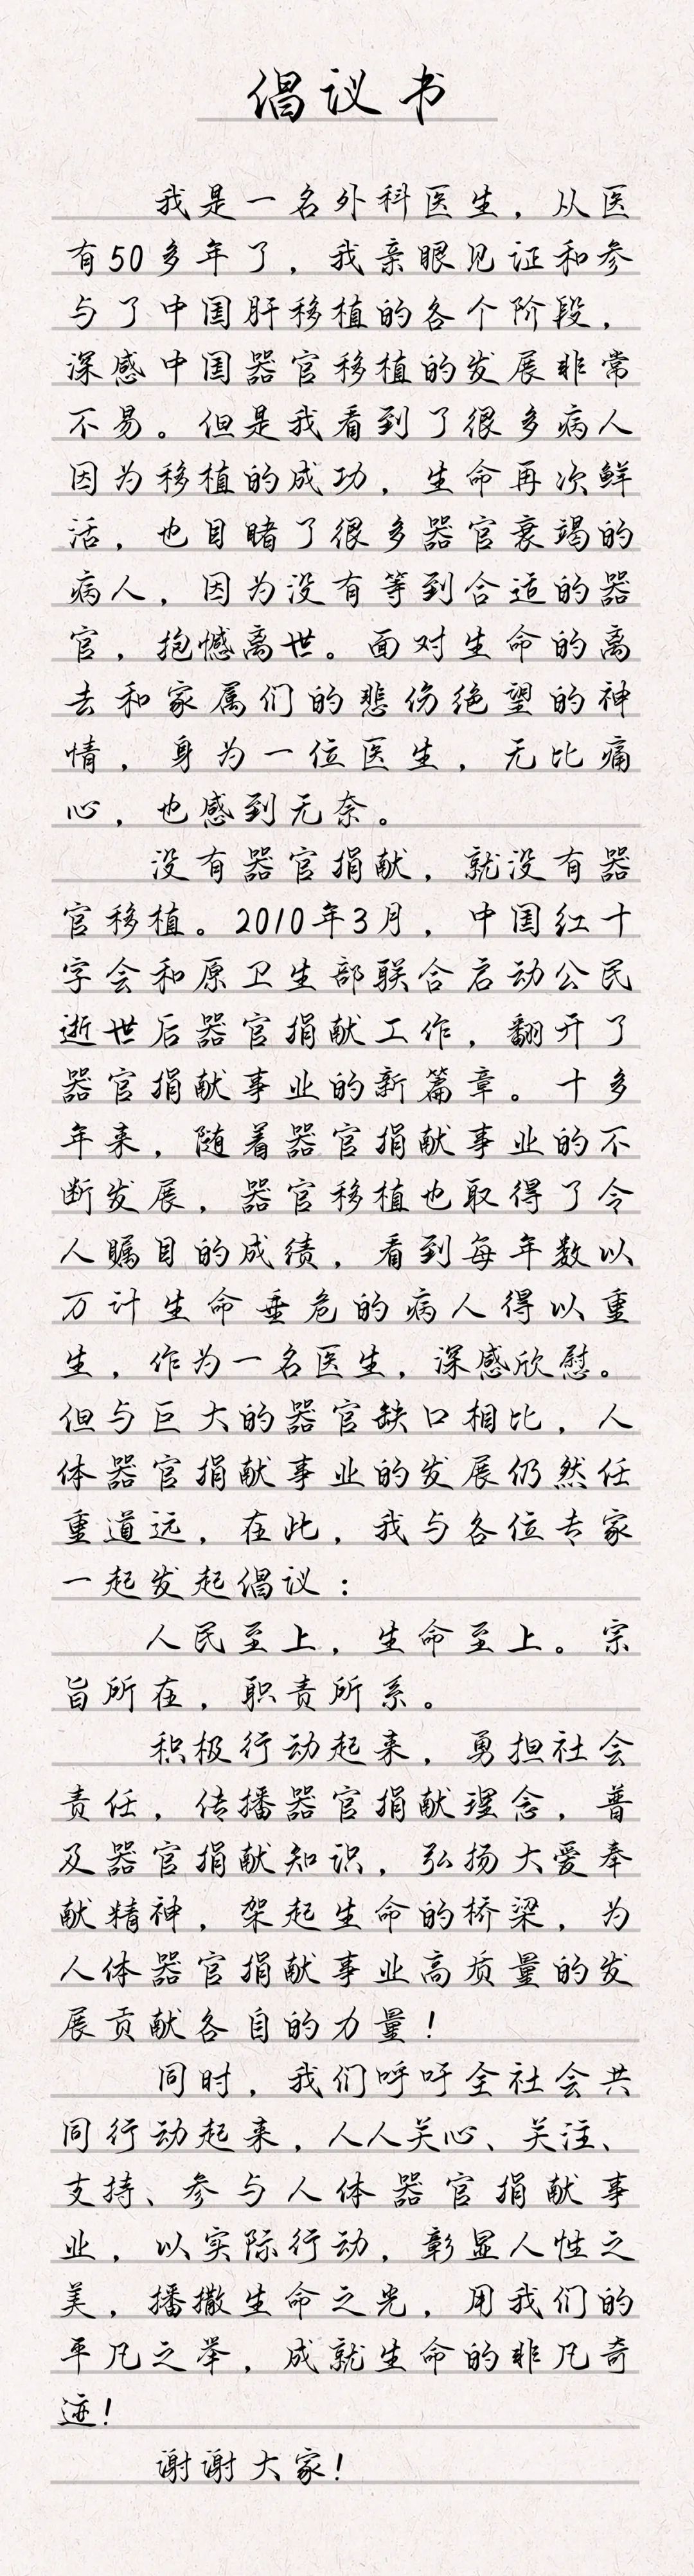 倡议书
我是一名外科医生，从医
有50多年了，我亲眼见证和参
与了中国肝移植的各个阶段，
深感中国器官移植的发展非常
不易。但是我看到了很多病人
因为移植的成功，生命再次鲜
活，也目睹了很多器官衰竭的
病人，因为没有等到合适的器
官，抱憾离世。面对生命的离
去和家属们的悲伤绝望的神
情，身为一位医生，无比痛
心，也感到无奈。
没有器官捐献，就没有器
官移植。2010年3月，中国红十
字会和原卫生部联合启动公民
逝世后器官捐献工作，翻开了
器官捐献事业的新篇章。十多
年来，随着器官捐献事业的不
断发展，器官移植也取得了令
人瞩目的成绩，看到每年数以
万计生命垂危的病人得以重
生，作为一名医生，深感欣慰。
但与巨大的器官缺口相比，人
体器官捐献事业的发展仍然任
重道远，在此，我与各位专家
一起发起倡议：
人民至上，生命至上。宗
旨所在，职责所系。
积极行动起来，勇担社会
责任，传播器官捐献理念，普
及器官捐献知识，弘扬大爱奉
献精神，架起生命的桥梁，为
人体器官捐献事业高质量的发
展贡献各自的力量！
同时，我们呼吁全社会共
同行动起来，人人关心、关注、
支持、参与人体器官捐献事
业，以实际行动，彰显人性之
美，播撒生命之光，用我们的
平凡之举，成就生命的非凡奇
迹！
谢谢大家！